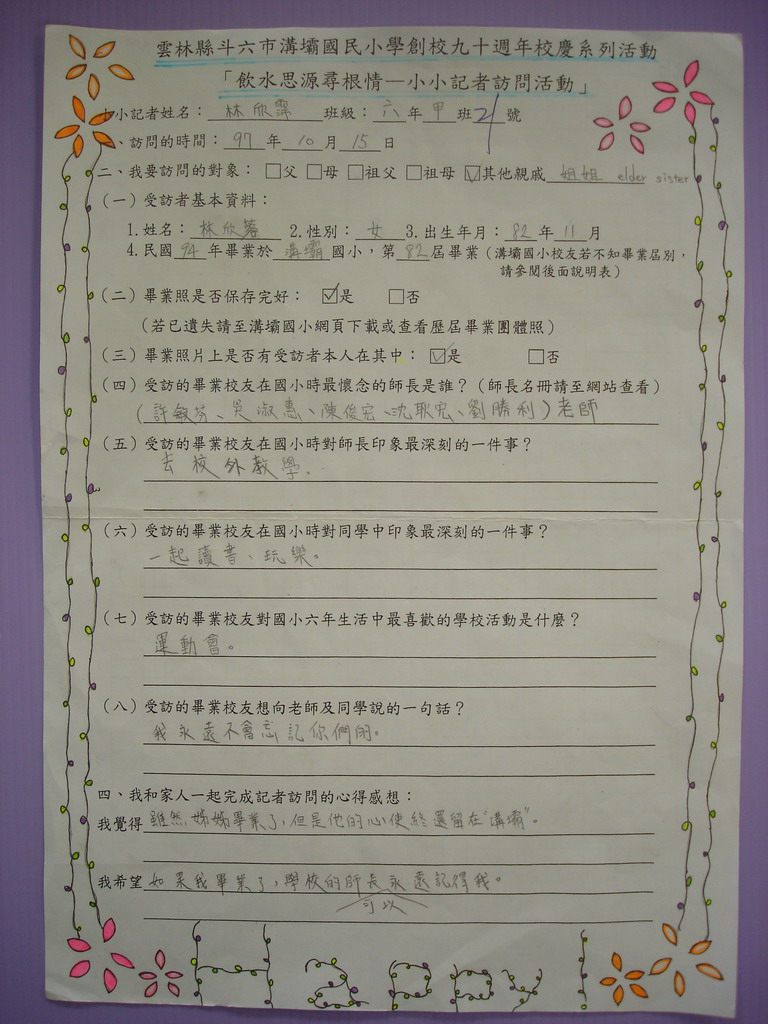 雲林縣斗六市溝壩國民小學創校九十週年校慶系列活動
「飲水思源尋根情—小小記者訪問活動」
小記者姓名：林欣霈 班級：六年甲班21號
、訪問的時間：97年10月15日
二、我要訪問的對象：□父 □母 □祖父 □祖母 ☑其他親戚 姐姐 elder sister
（一）受訪者基本資料：
1.姓名：林欣蓉 2.性別：女 3.出生年月：82年11月
4.民國94年畢業於溝壩國小，第82屆畢業（溝壩國小校友若不知畢業屆別，
請參閱後面說明表）
（二）畢業照是否保存完好：☑是 □否
（若已遺失請至溝壩國小網頁下載或查看歷屆畢業團體照）
（三）畢業照片上是否有受訪者本人在其中：☑是 □否
（四）受訪的畢業校友在國小時最懷念的師長是誰？（師長名冊請至網站查看）
（許敏芬、吳淑惠、陳俊宏、沈耿宏、劉勝利）老師
（五）受訪的畢業校友在國小時對師長印象最深刻的一件事？
去校外教學.
（六）受訪的畢業校友在國小時對同學中印象最深刻的一件事？
一起讀書、玩樂。
（七）受訪的畢業校友對國小六年生活中最喜歡的學校活動是什麼？
運動會。
（八）受訪的畢業校友想向老師及同學說的一句話？
我永遠不會忘記你們的。
四、我和家人一起完成記者訪問的心得感想：
我覺得雖然姊姊畢業了，但是他的心使終還留在"溝壩"。
我希望如果我畢業了，學校的師長可以永遠記得我。
Happy!